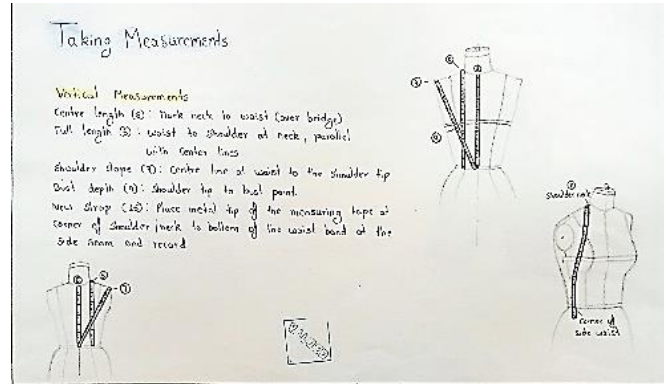 Taking Measurements
Vertical Measurements
Centre length : neck to waist (over bridge)
Full length : waist to shoulder at neck, parallel
with center lines
Shoulder slope (7) : Centre line at waist to the shoulder tip
Bust depth (9) : Shoulder tip to bust point.
New Strap : Place metal tip of the measuring tape at
corner of shoulder/neck to bottom of the waist band at the
side seam and record
Shoulder neck
corner of
side waist